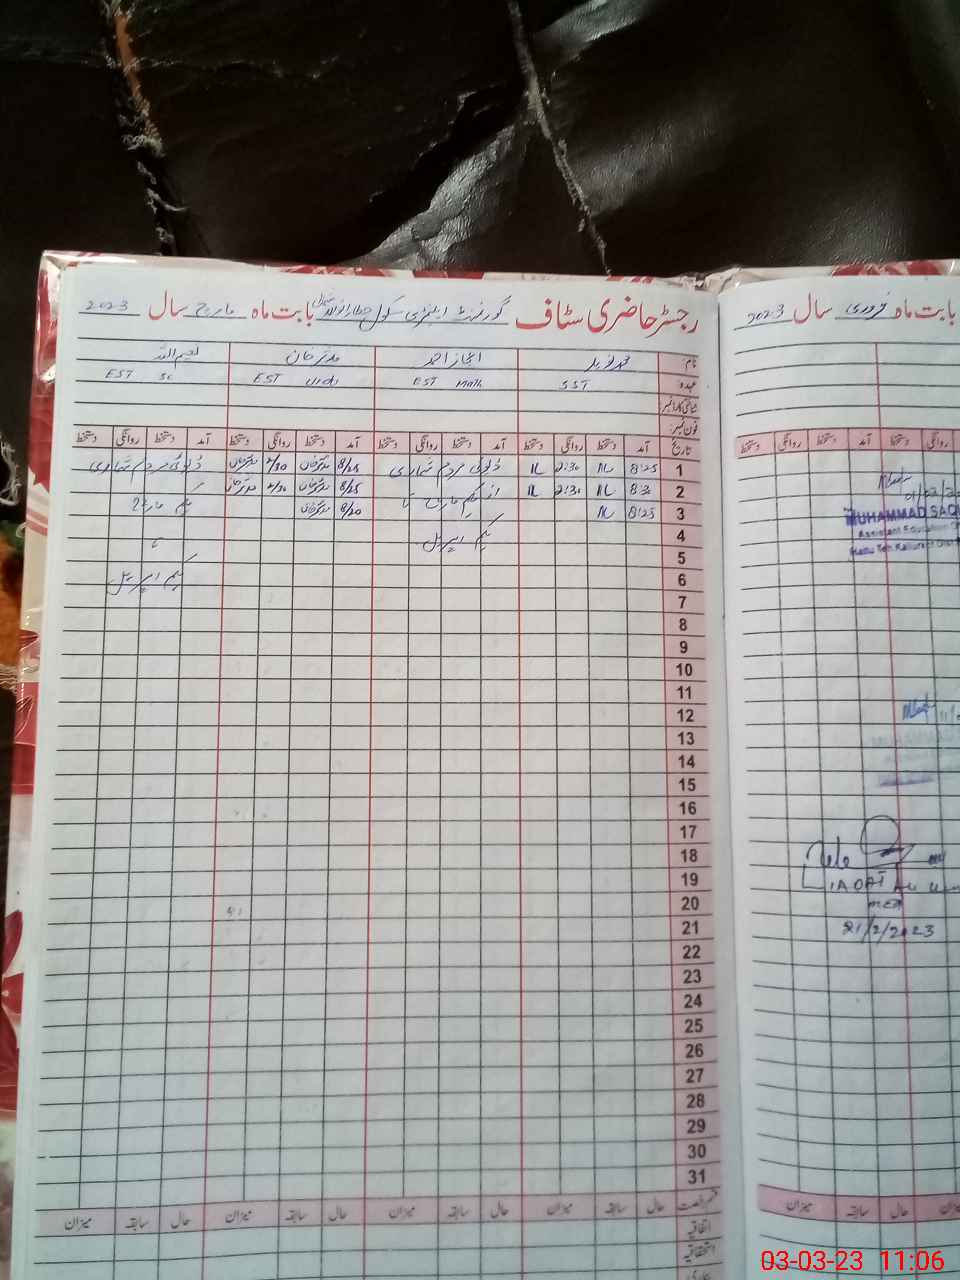 رجسٹر حاضری سٹاف گورنمنٹ ایلیمنٹری سکول بابت ماہ مارچ سال 2023
نام: اعجاز احمد مدثر خان نعیم اللہ
عہدہ: SST EST Math EST Urdu EST Sc
شناختی کارڈ نمبر
فون نمبر:
تاریخ آمد دستخط روانگی دستخط آمد دستخط روانگی دستخط آمد دستخط روانگی دستخط آمد دستخط روانگی دستخط
1 8:25 2:30 ڈیوٹی مردم شماری 8/25 2/30 ڈیوٹی مردم شماری
2 8:30 2:30 از یکم مارچ تا 8/25 2/30 یکم مارچ
3 8:25 8/20
4 یکم اپریل تا
5
6 یکم اپریل
7
8
9
10
11
12
13
14
15
16
17
18
19
20
21
22
23
24
25
26
27
28
29
30
31
قسم رخصت حال سابقہ میزان حال سابقہ میزان حال سابقہ میزان حال سابقہ میزان
اتفاقیہ
استحقاقیہ
بابت ماہ فروری سال 2023
دستخط روانگی دستخط آمد دستخط
MUHAMMAD SAQ
Assistant Education
21/2/2023
میزان سابقہ حال
03-03-23 11:06